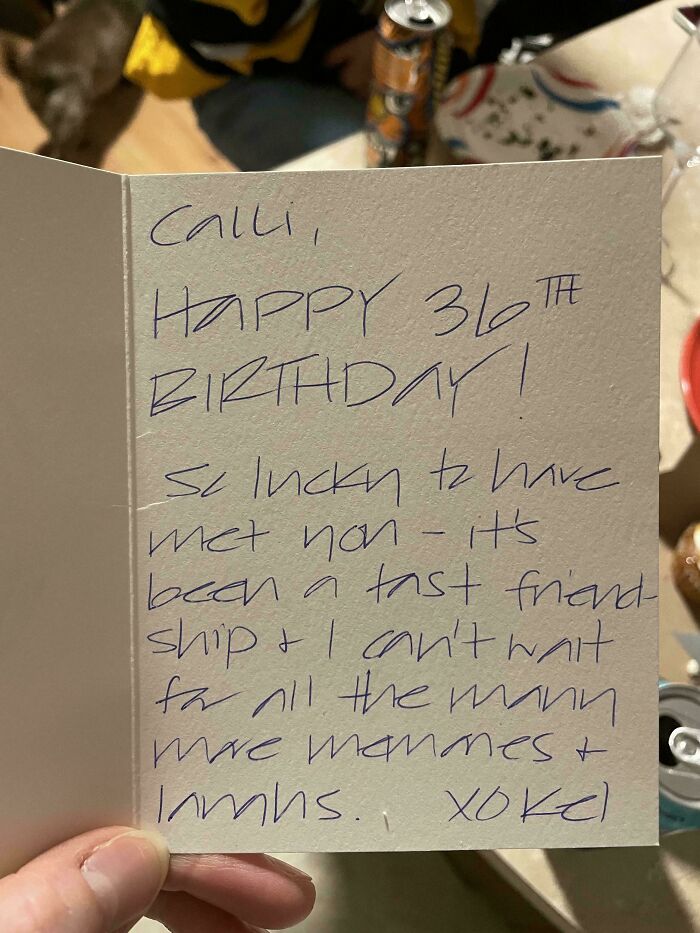 Calli,
HAPPY 36TH
BIRTHDAY!
So lucky to have
met you - it's
been a fast friend-
ship + I can't wait
for all the many
more memories +
laughs. XO Kel